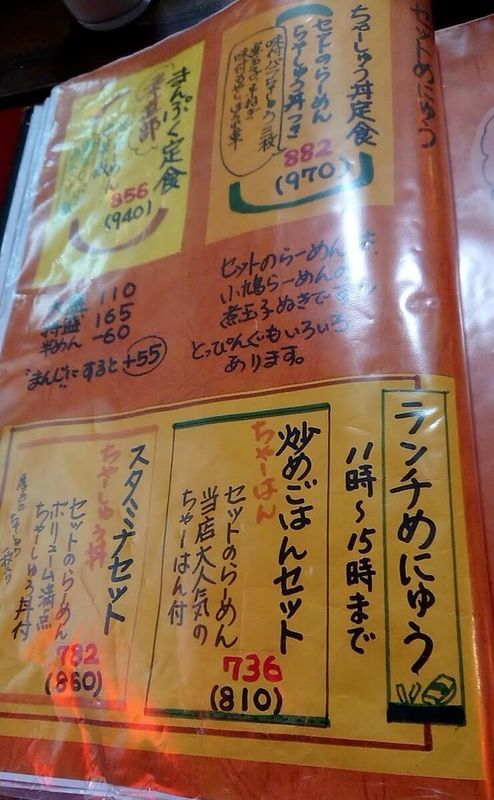 セットめにゅう
ちゃーしゅう丼定食
セットのらーめん
ちゃーしゅう丼つき
882
(970)
まんぷく定食
856
(940)
110
特盛 165
半めん -60
"まんじ"にすると +55
セットのらーめんは、
小鳩らーめんの
煮玉子ぬきです。
とっぴんぐもいろいろ
あります。
ランチめにゅう
11時~15時まで
炒めごはんセット
ちゃーはん
セットのらーめん
当店大人気の
ちゃーはん付
736
(810)
スタミナセット
ちゃーしゅう丼
セットのらーめん
ボリューム満点
ちゃーしゅう丼付
782
(860)